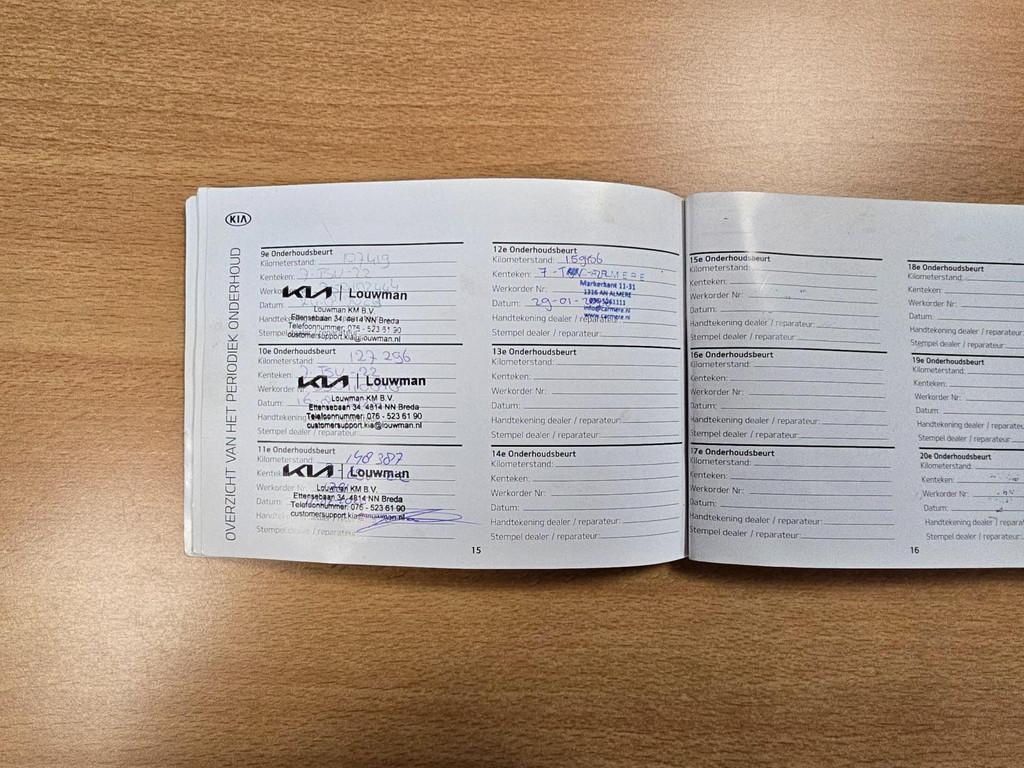 KIA
OVERZICHT VAN HET PERIODIEK ONDERHOUD
9e Onderhoudsbeurt
Kilometerstand: 107419
Kenteken: 7-TSV-22
KIA | Louwman
Datum:
Louwman KM B.V.
Ettensebaan 34, 4814 NN Breda
Telefoonnummer: 076 - 523 61 90
customersupport.kia@louwman.nl
10e Onderhoudsbeurt
Kilometerstand: 127 296
Kenteken: 7-TSV-22
Werkorder Nr:
KIA | Louwman
Datum: 16
Louwman KM B.V.
Ettensebaan 34, 4814 NN Breda
Handtekening
Telefoonnummer: 076 - 523 61 90
customersupport.kia@louwman.nl
Stempel dealer / reparateur:
11e Onderhoudsbeurt
Kilometerstand: 148 387
KIA | Louwman
Werkorder Nr
Louwman KM B.V.
Ettensebaan 34, 4814 NN Breda
Datum:
Telefoonnummer: 076 - 523 61 90
customersupport.kia@louwman.nl
Stempel dealer / reparateur:
12e Onderhoudsbeurt
Kilometerstand:
Kenteken: 7-
Werkorder Nr:
Markerkant 11-31
1316 AN ALMERE
Datum: 29-01-
info@carmere.nl
www.carmere.nl
Handtekening dealer / reparateur:
Stempel dealer / reparateur:
13e Onderhoudsbeurt
Kilometerstand:
Kenteken:
Werkorder Nr:
Datum:
Handtekening dealer / reparateur:
Stempel dealer / reparateur:
14e Onderhoudsbeurt
Kilometerstand:
Kenteken:
Werkorder Nr:
Datum:
Handtekening dealer / reparateur:
Stempel dealer / reparateur:
15
15e Onderhoudsbeurt
Kilometerstand:
Kenteken:
Werkorder Nr:
Datum:
Handtekening dealer / reparateur:
Stempel dealer / reparateur:
16e Onderhoudsbeurt
Kilometerstand:
Kenteken:
Werkorder Nr:
Datum:
Handtekening dealer / reparateur:
Stempel dealer / reparateur:
17e Onderhoudsbeurt
Kilometerstand:
Kenteken:
Werkorder Nr:
Datum:
Handtekening dealer / reparateur:
Stempel dealer / reparateur:
18e Onderhoudsbeurt
Kilometerstand:
Kenteken:
Werkorder Nr:
Datum:
Handtekening dealer / reparateur
Stempel dealer / reparateur:
19e Onderhoudsbeurt
Kilometerstand:
Kenteken:
Werkorder Nr:
Datum:
Handtekening dealer / reparateur
Stempel dealer / reparateur:
20e Onderhoudsbeurt
Kilometerstand:
Kenteken:
Werkorder Nr:
Datum:
Handtekening dealer / reparateur
Stempel dealer / reparateur:
16